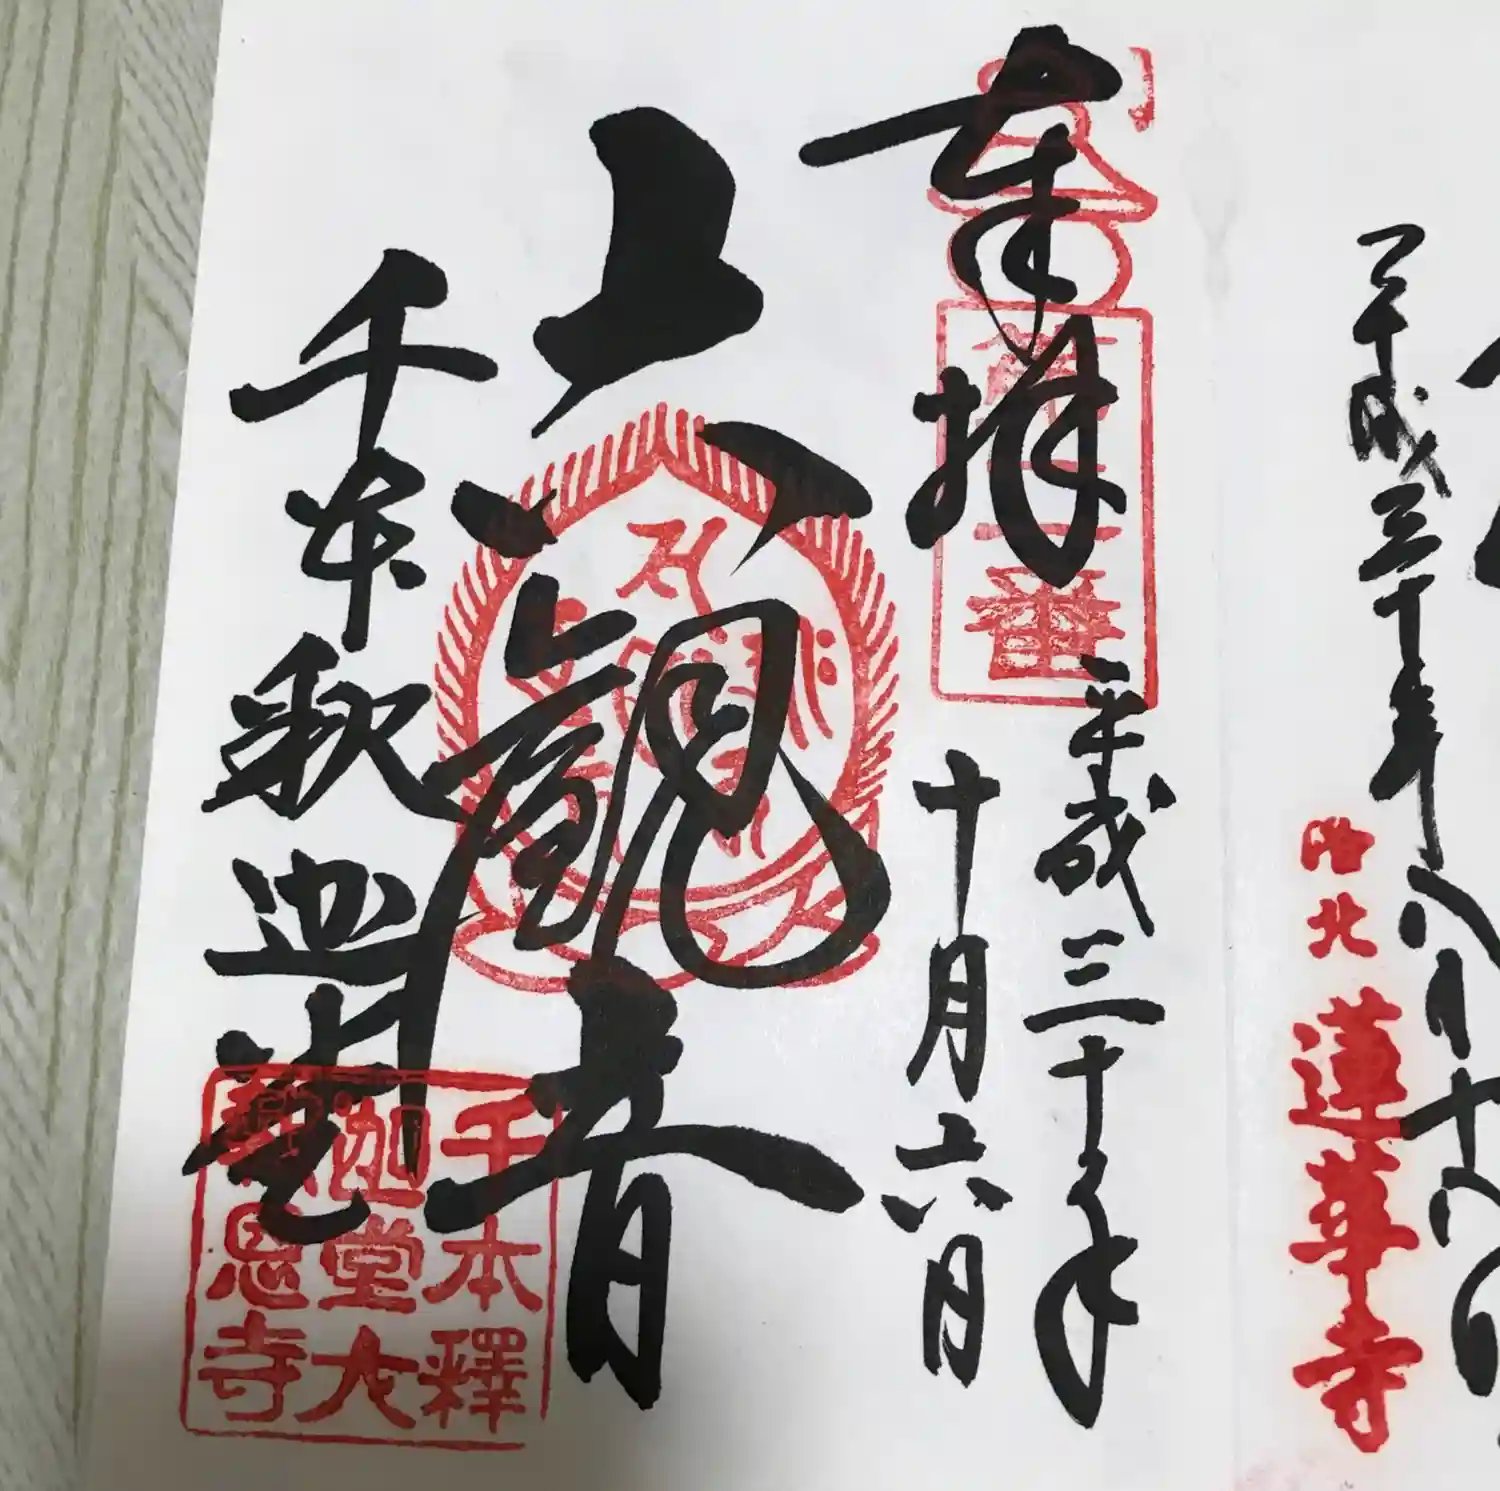 平成三十年八月十八日
洛北
蓮華寺
奉拝
第十二番
平成三十年
十月六日
六観音
千本釈迦堂
千本釋
迦堂大
報恩寺